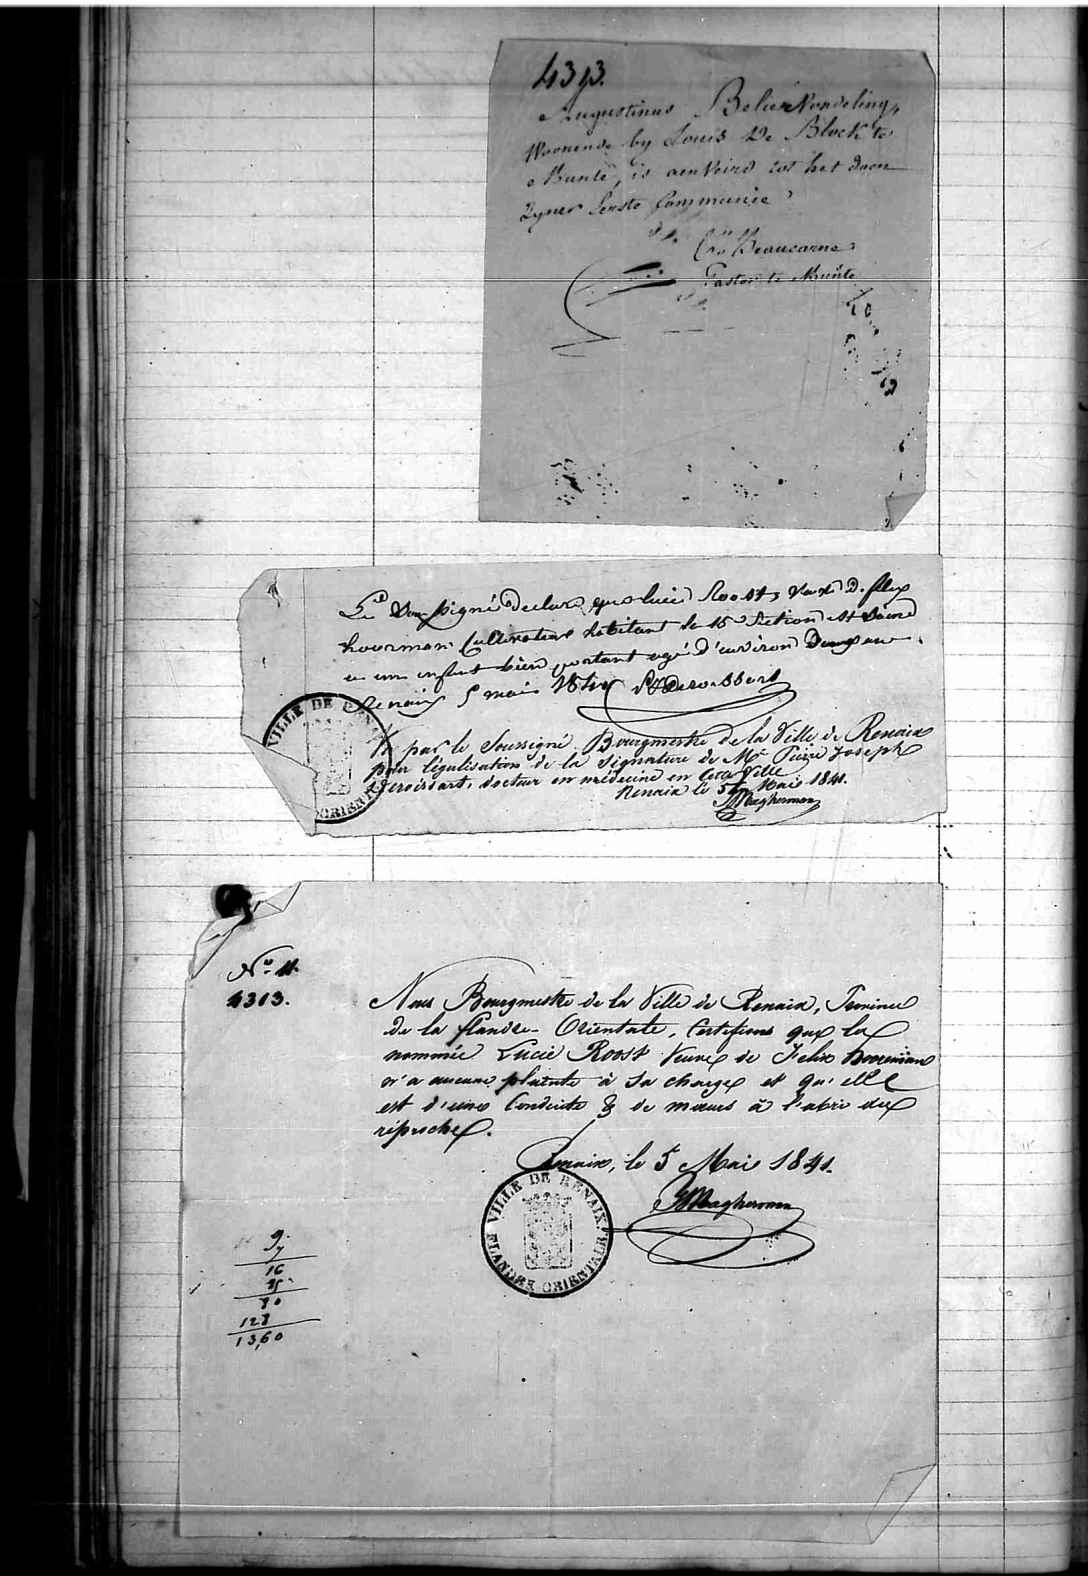 4393.
Augustinus Belier Vondeling,
Woonende by Louis De Block te
Munte, is aenveird tot het doen
Zyner Eerste Communie
Beaucarne
Pastor te Munte
Le Soussigné Declare que lucie Roost, veuve D. felix
hoorman Cultivateur habitant la 15 Section
a un enfant bien portant agé d'environ Deux ans
Renaix 5 mai 1841
Vu par le Soussigné, Bourgmestre de la Ville de Renaix
pour légalisation de la signature de Mr Pierre Joseph
Deroissart, docteur en médecine en cette Ville
Renaix le 5 Mai 1841.
Magherman
VILLE DE RENAIX
ORIENTALE
No 11.
4313.
Nous Bourgmestre de la Ville de Renaix, Province
de la flandre-Orientale, Certifions que la
nommée Lucie Roost Veuve de Felix Hooreman
n'a aucune plainte à sa charge et qu'elle
est d'une Conduite & de mœurs à l'abri de
reproche.
Renaix, le 5 Mai 1841.
Magherman
VILLE DE RENAIX.
FLANDRE ORIENTALE
9
7
16
80
128
13,60